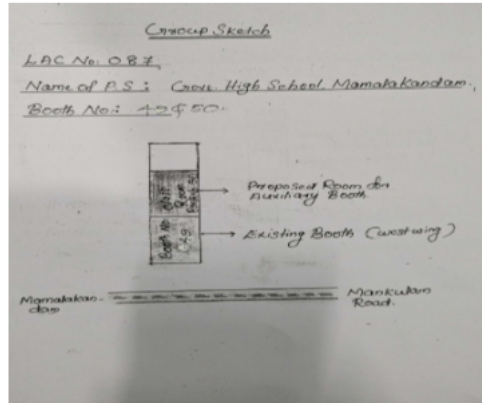 Group Sketch
LAC No: 087
Name of P.S : Govt. High School, Mamalakandam,
Booth No: 49 & 50.
Proposed Room for
Auxiliary Booth.
Booth No
Existing Booth (west wing)
Mamalakan-
dam
Mankulam
Road.